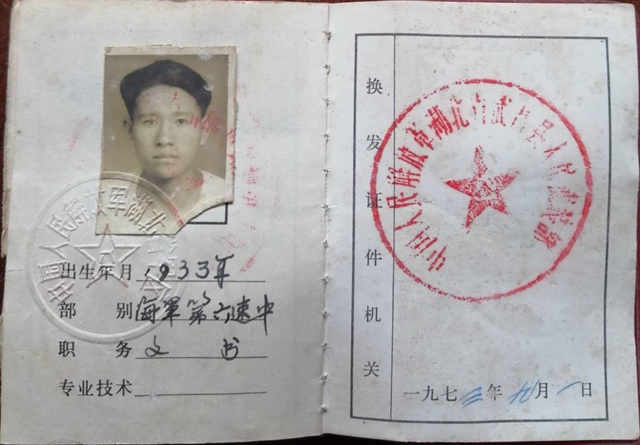 中国人民解放军湖北
出生年月 1933年
部别 海军第六速中
职务 文书
专业技术
换发证件机关
中国人民解放军湖北省武昌县人民武装部
一九七三年九月一日